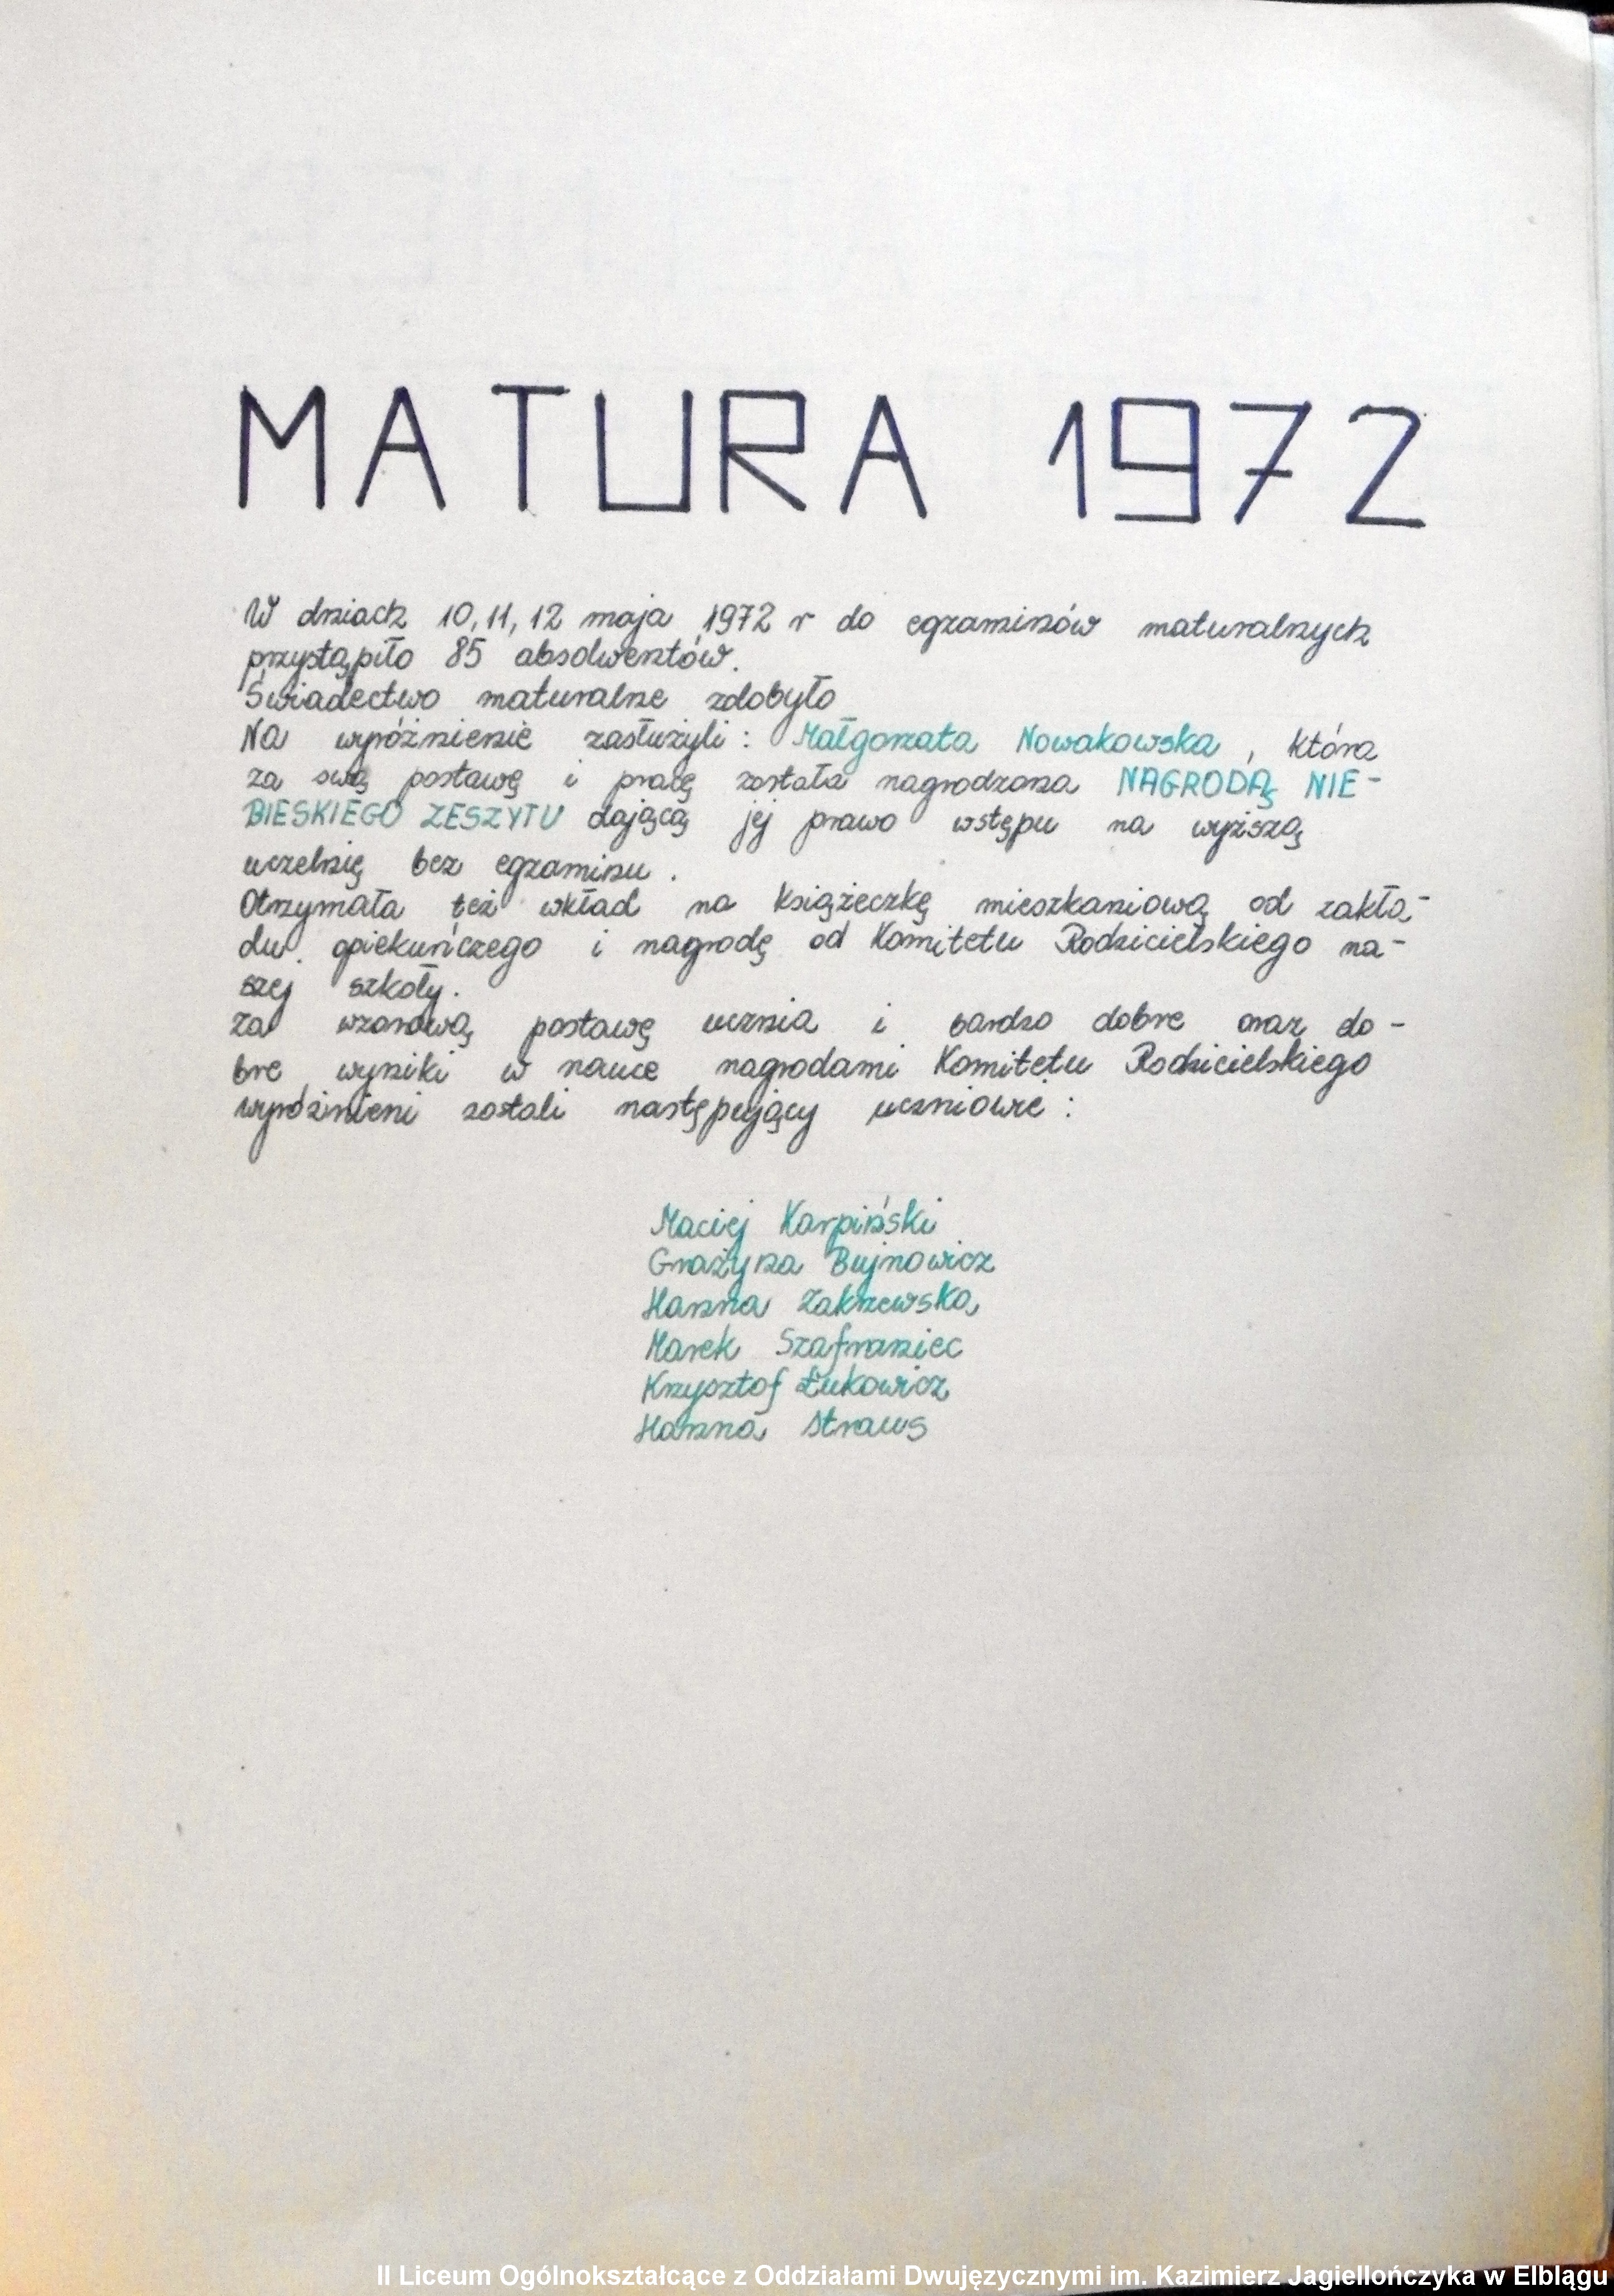 MATURA 1972
W dniach 10, 11, 12 maja 1972 r do egzaminów maturalnych
przystąpiło 85 absolwentów.
Świadectwo maturalne zdobyło
Na wyróżnienie zasłużyli : Małgorzata Nowakowska , która
za swą postawę i pracę została nagrodzona NAGRODĄ NIE-
BIESKIEGO ZESZYTU dającą jej prawo wstępu na wyższą
uczelnię bez egzaminu .
Otrzymała też wkład na książeczkę mieszkaniową od zakła-
du opiekuńczego i nagrodę od Komitetu Rodzicielskiego na-
szej szkoły.
Za wzorową postawę ucznia i bardzo dobre oraz do-
bre wyniki w nauce nagrodami Komitetu Rodzicielskiego
wyróżnieni zostali następujący uczniowie :
Maciej Karpiński
Grażyna Bujnowicz
Hanna Zakrzewska
Marek Szafraniec
Krzysztof Łukowicz
Hanna Straus
II Liceum Ogólnokształcące z Oddziałami Dwujęzycznymi im. Kazimierz Jagiellończyka w Elblągu